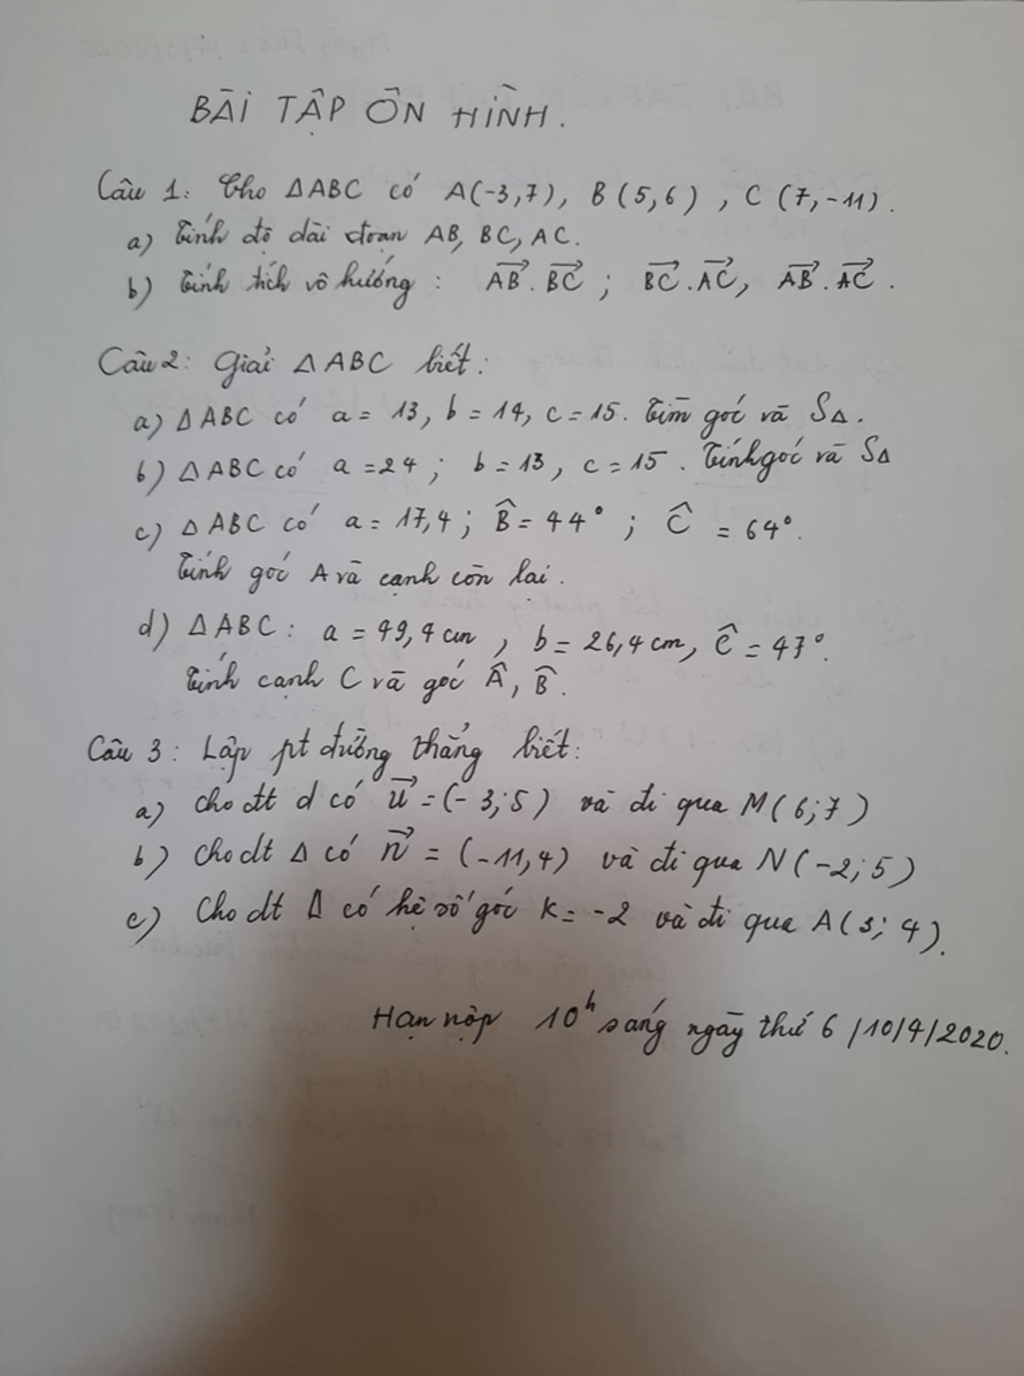 BÀI TẬP ÔN HÌNH.
Câu 1: Cho ΔABC có A(-3,7), B(5,6), C(7,-11).
a) Tính độ dài đoạn AB, BC, AC.
b) Tính tích vô hướng: AB⃗.BC⃗; BC⃗.AC⃗, AB⃗.AC⃗.
Câu 2: Giải ΔABC biết:
a) ΔABC có a = 13, b = 14, c = 15. Tìm góc và SΔ.
b) ΔABC có a = 24; b = 13, c = 15. Tính góc và SΔ
c) ΔABC có a = 17,4; B̂ = 44°; Ĉ = 64°.
Tính góc A và cạnh còn lại.
d) ΔABC: a = 49,4 cm, b = 26,4 cm, Ĉ = 47°.
Tính cạnh C và góc Â, B̂.
Câu 3: Lập pt đường thẳng biết:
a) Cho đt d có u⃗ = (-3;5) và đi qua M(6;7)
b) Cho dt Δ có n⃗ = (-11,4) và đi qua N(-2;5)
c) Cho dt Δ có hệ số góc K = -2 và đi qua A(3;4).
Hạn nộp 10h sáng ngày thứ 6 /10/4/2020.